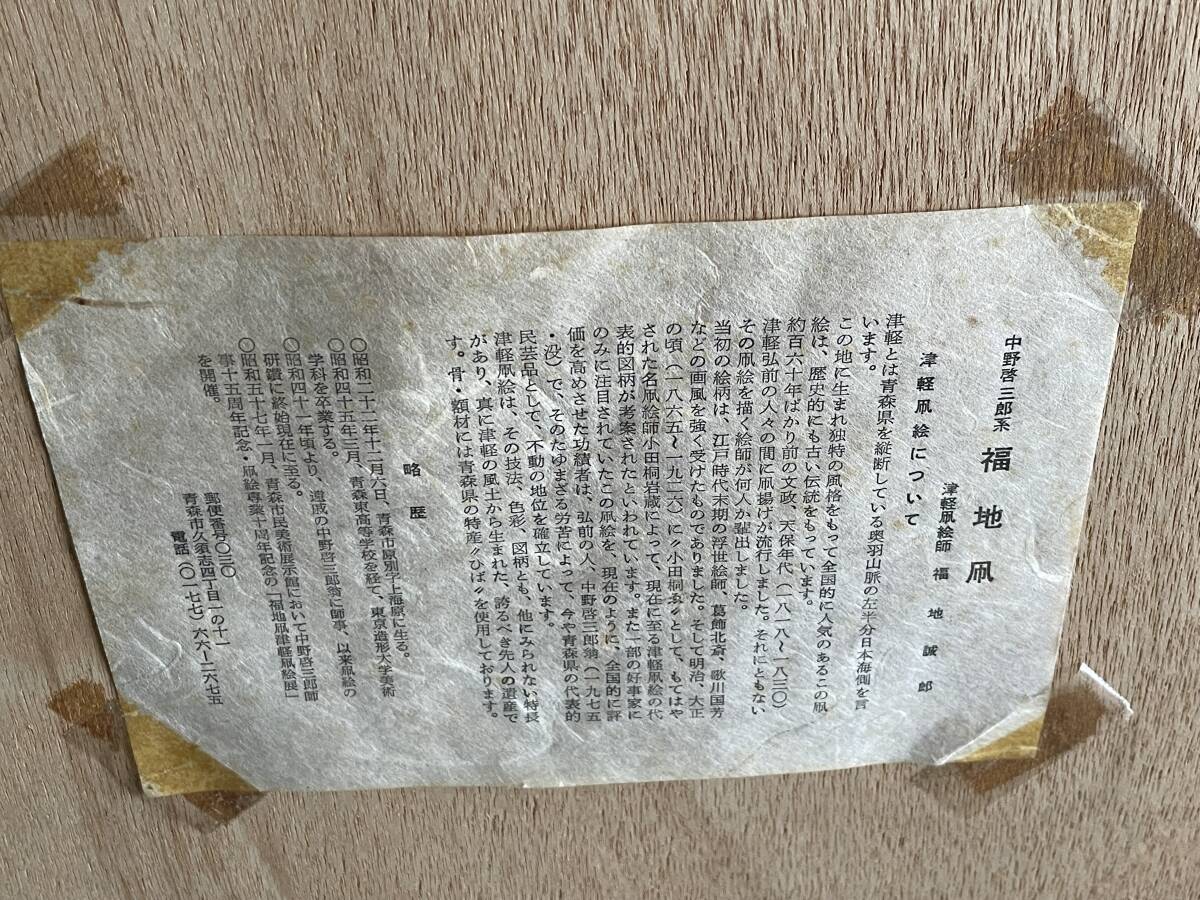 中野啓三郎系 福地凧
津軽凧絵師 福地誠郎
津軽凧絵について
津軽とは青森県を縦断している奥羽山脈の左半分日本海側を言
います。
この地に生まれ独特の風格をもって全国的に人気のあるこの凧
絵は、歴史的にも古い伝統をもっています。
約百六十年ばかり前の文政、天保年代(一八一八〜一八三〇)
津軽弘前の人々の間に凧揚げが流行しました。それにともない
その凧絵を描く絵師が何人か輩出しました。
当初の絵柄は、江戸時代末期の浮世絵師、葛飾北斎、歌川国芳
などの画風を強く受けたものでありました。そして明治、大正
の頃(一八六五〜一九二六)に〝小田桐〟として、もてはや
された名凧絵師小田桐岩蔵によって、現在に至る津軽凧絵の代
表的図柄が考案されたといわれています。また一部の好事家に
のみに注目されていたこの凧絵を、現在のように、全国的に評
価を高めさせた功績者は、弘前の人、中野啓三郎翁(一九七五
・没)で、そのたゆまざる労苦によって、今や青森県の代表的
民芸品として、不動の地位を確立しています。
津軽凧絵は、その技法、色彩、図柄とも、他にみられない特長
があり、真に津軽の風土から生まれた、誇るべき先人の遺産で
す。骨・額材には青森県の特産〝ひば〟を使用しております。
略歴
〇昭和二十二年十二月六日、青森市原別字上海原に生る。
〇昭和四十五年三月、青森東高等学校を経て、東京造形大学美術
学科を卒業する。
〇昭和四十一年頃より、遵戚の中野啓三郎翁に師事、以来凧絵の
研鑽に終始現在に至る。
〇昭和五十七年一月、青森市民美術展示館において中野啓三郎師
事十五周年記念・凧絵専業十周年記念の「福地凧津軽凧絵展」
を開催。
郵便番号〇三〇
青森市久須志四丁目一の十一
電話(〇一七七)六六ー二六七五